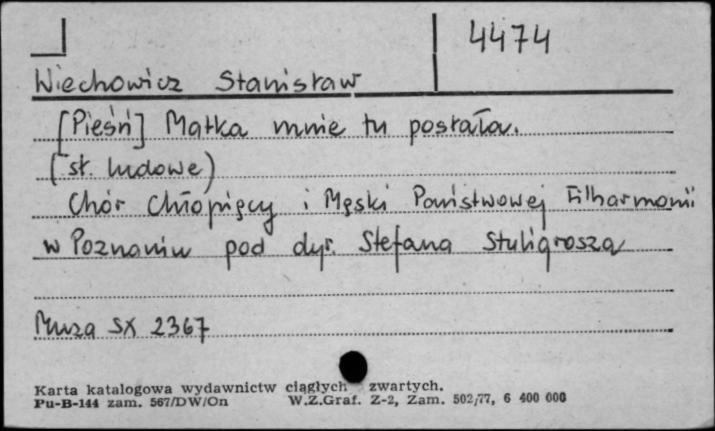 4474
Wiechowicz Stanisław
[Pieśń] Matka mnie tu posłała.
(sł. ludowe)
Chór Chłopięcy i Męski Państwowej Filharmonii
w Poznaniu pod dyr. Stefana Stuligrosza
Muza SX 2367
Karta katalogowa wydawnictw ciągłych zwartych.
Pu-B-144 zam. 567/DW/On W.Z.Graf. Z-2, Zam. 502/77, 6 400 000